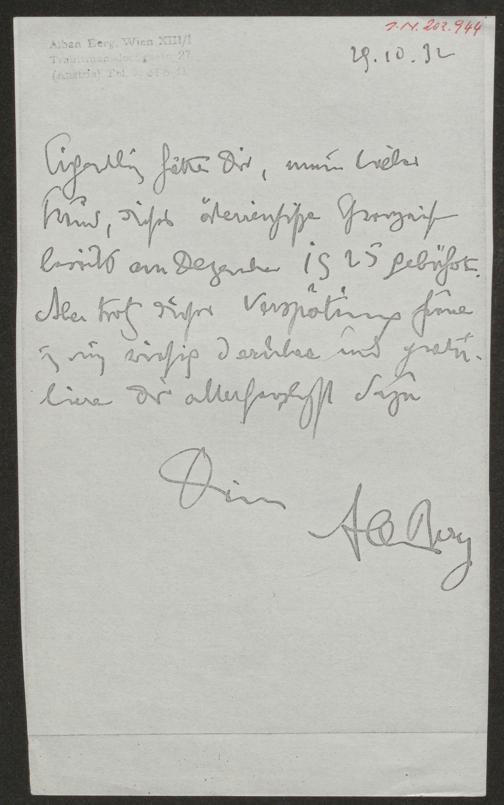 I.N. 202.944
Alban Berg, Wien XIII/1
Trauttmansdorffgasse 27
(Austria) Tel.
29.10.32
Eigentlich hätte Dir, mein lieber
Freund, dieses österreichische Ehrenzeich
bereits am Dezember 1925 gebührt.
Aber trotz dieser Verspätung freue
ich mich riesig darüber und gratu-
liere Dir allerherzlichst dazu
Dein
Alban Berg